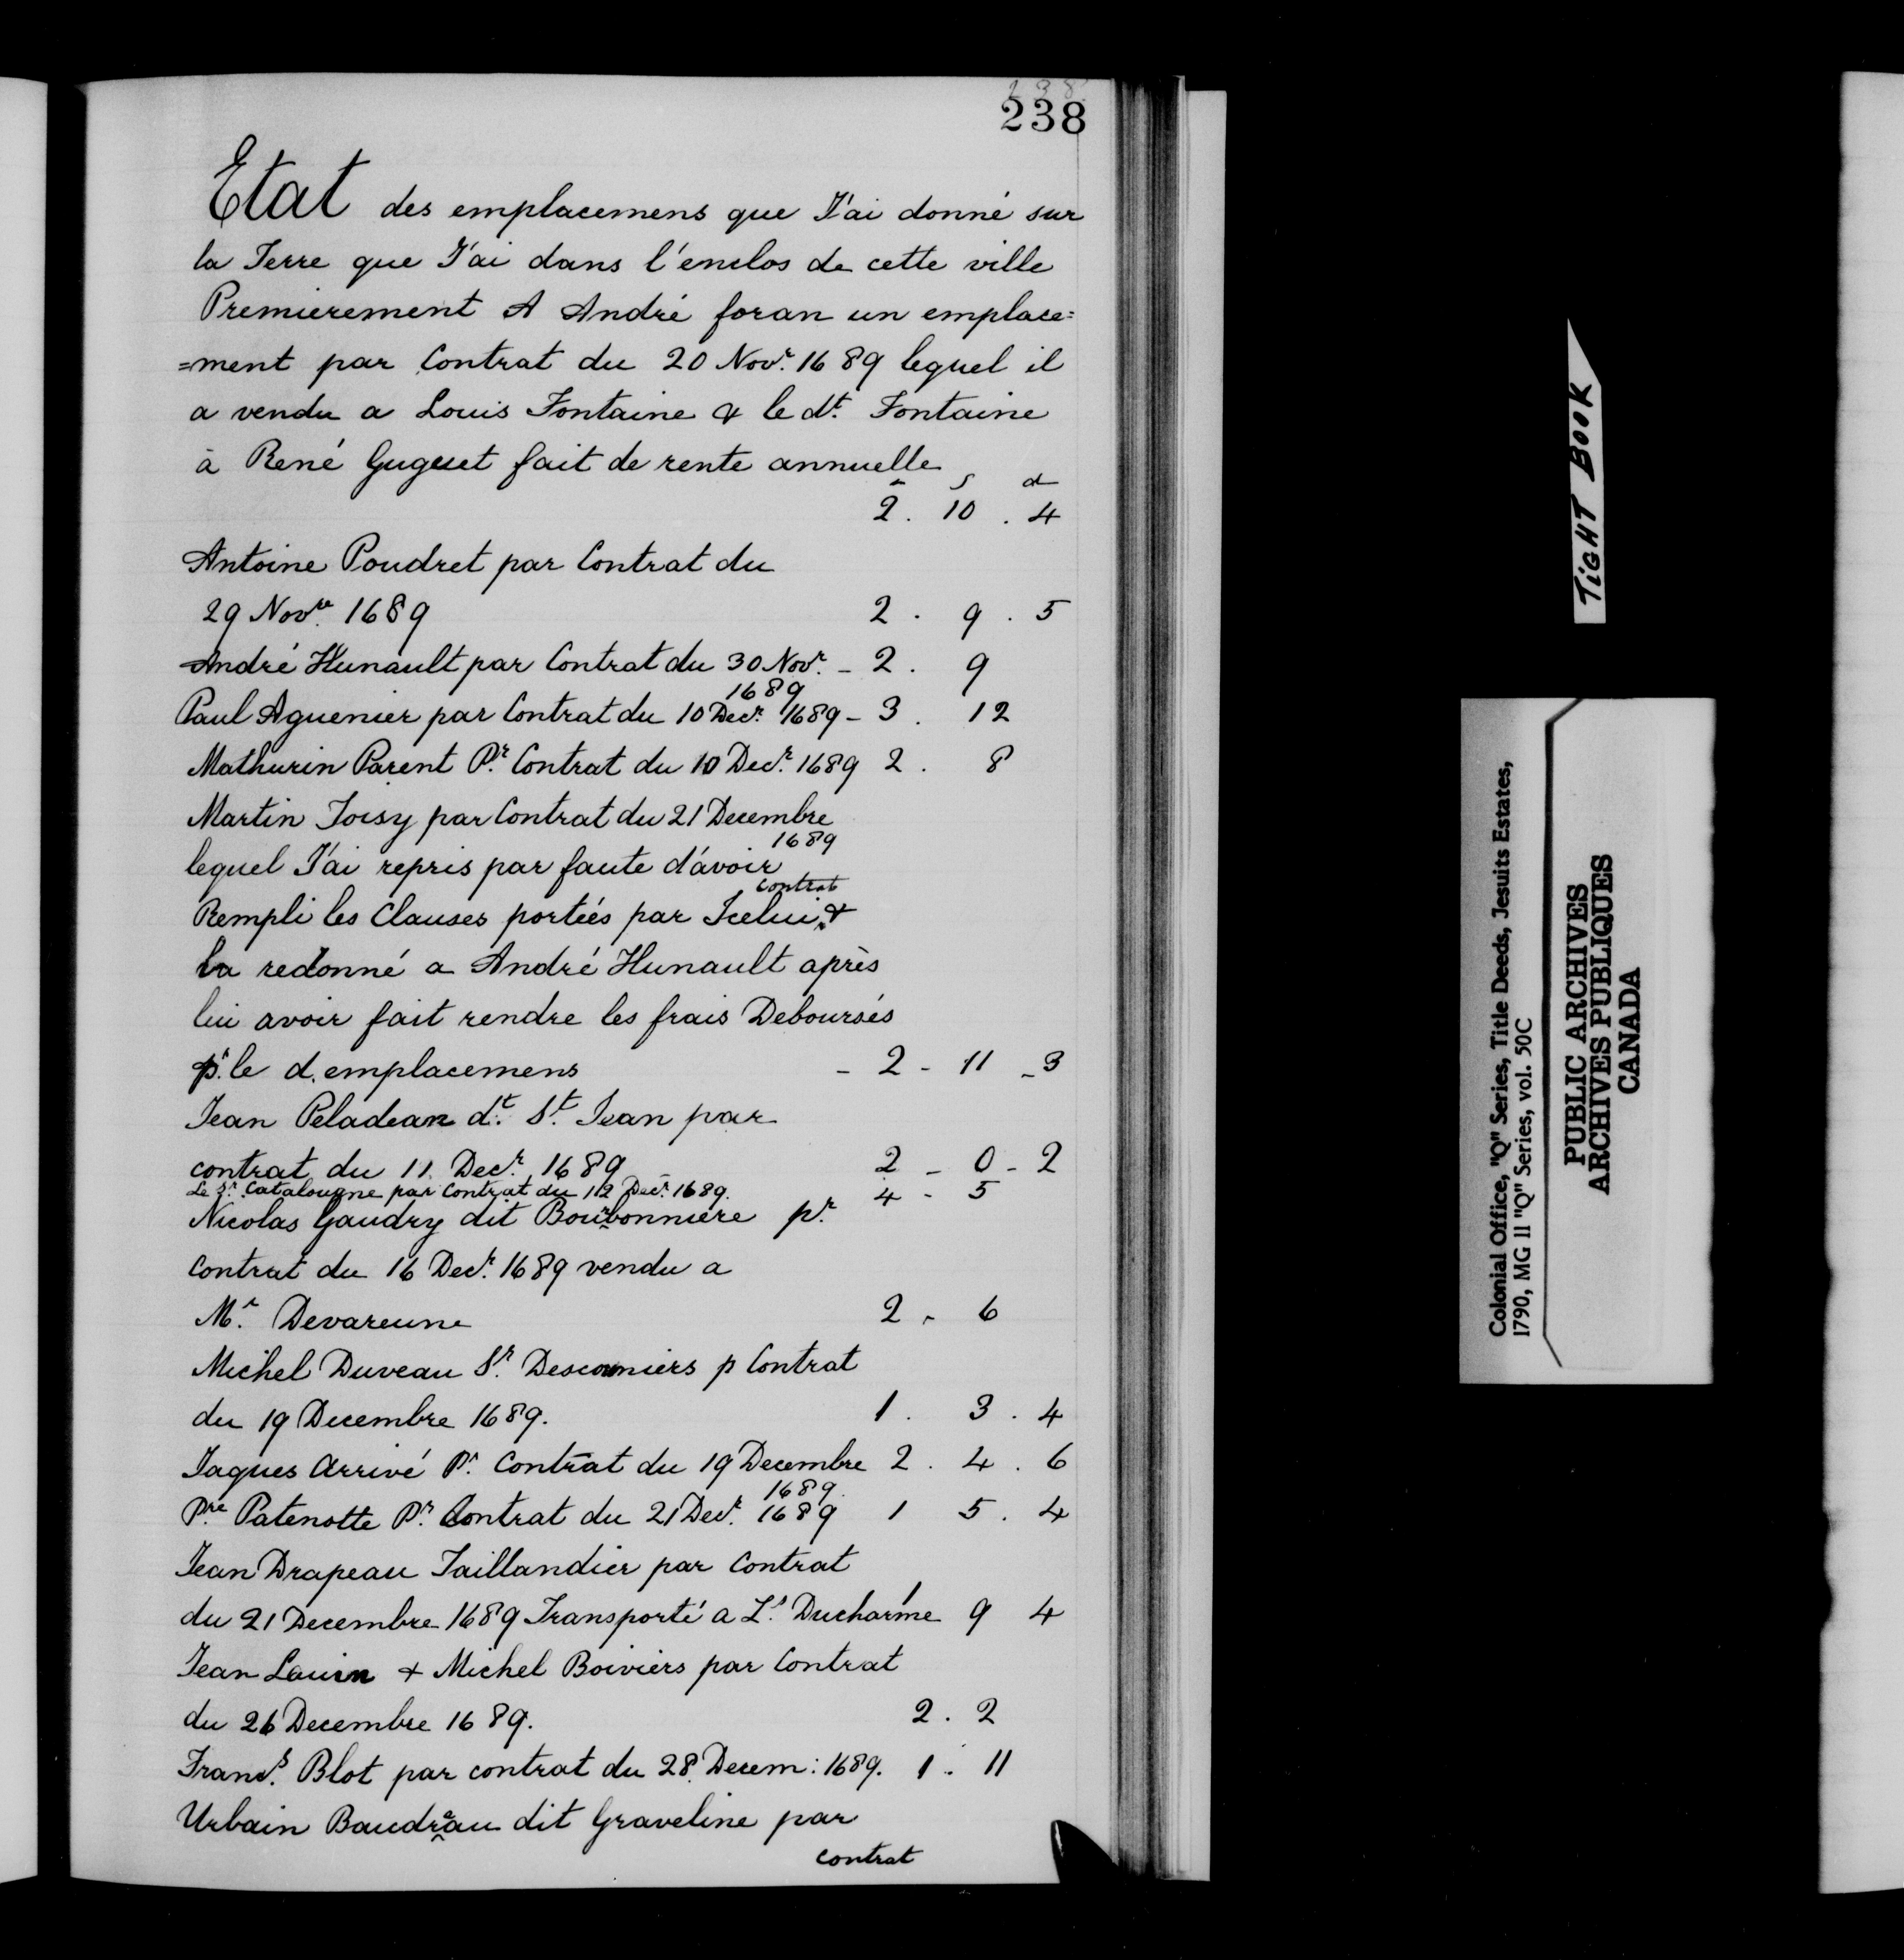 238
238
Etat des emplacemens que J'ai donné sur
la Terre que J'ai dans l'enclos de cette ville
Premierement A André foran un emplace=
=ment par Contrat du 20 Novr. 1689 lequel il
a vendu a Louis Fontaine & le dt. Fontaine
à René Guguet fait de rente annuelle
s d
2 . 10 . 4
Antoine Poudret par Contrat du
29 Novre. 1689 2 . 9 . 5
André Hunault par Contrat du 30 Novr. - 2 . 9
1689
Paul Aguenier par Contrat du 10 Decr. 1689 - 3 . 12
Mathurin Parent Pr. Contrat du 10 Decr. 1689 2 . 8
Martin Joisy par Contrat du 21 Decembre
1689
lequel J'ai repris par faute d'avoir
contrat
Rempli les Clauses portées par Icelui &
la redonné a André Hunault après
lui avoir fait rendre les frais Deboursés
pr. le d. emplacemens - 2 - 11 - 3
Jean Peladean dt. St. Jean par
contrat du 11. Decr. 1689 2 - 0 - 2
Le Sr. Catalougne par Contrat du 12 Decr. 1689. 4 - 5
Nicolas Gaudry dit Bourbonniere pr.
Contrat du 16 Decr. 1689 vendu a
Mr. Devareune 2 - 6
Michel Duveau Sr. Descormiers p Contrat
du 19 Decembre 1689. 1 . 3 . 4
Jaques Arrivé Pr. Contrat du 19 Decembre 2 . 4 . 6
1689.
Pre. Patenotte Pr. Contrat du 21 Decr. 1689 1 5 . 4
Jean Drapeau Taillandier par Contrat
du 21 Decembre 1689 Transporté a Ls. Ducharme 1 9 4
Jean Lauin & Michel Boiviers par Contrat
du 26 Decembre 1689. 2 . 2
Francs. Blot par contrat du 28. Decem: 1689. 1 . 11
Urbain Baudreau dit Graveline par
contrat
TIGHT BOOK
Colonial Office, "Q" Series, Title Deeds, Jesuits Estates,
1790, MG 11 "Q" Series, vol. 50C
PUBLIC ARCHIVES
ARCHIVES PUBLIQUES
CANADA